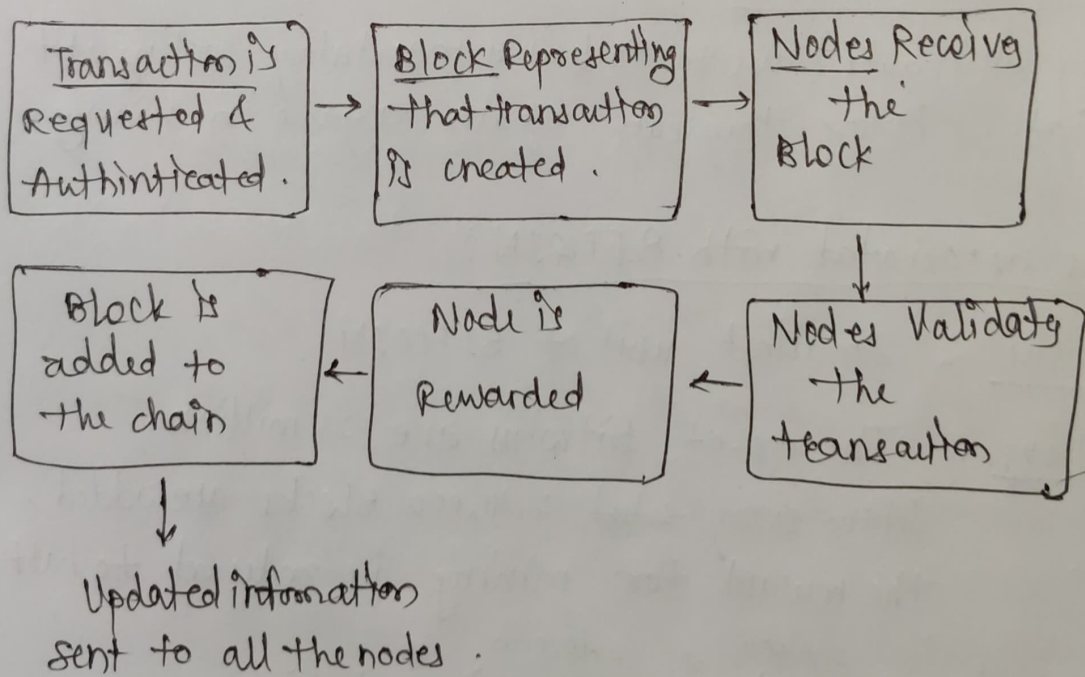 Transaction is
Requested &
Authinticated.
Block Representing
that transaction
is created.
Nodes Receive
the
Block
Nodes Validate
the
transaction
Node is
Rewarded
Block is
added to
the chain
Updated information
sent to all the nodes.